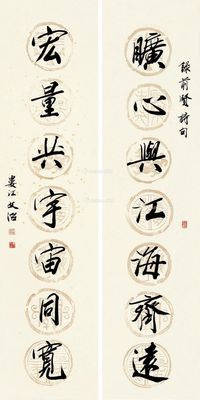 前賢詩句
曠心與江海齊遠
宏量共宇宙同寬
婁江文治